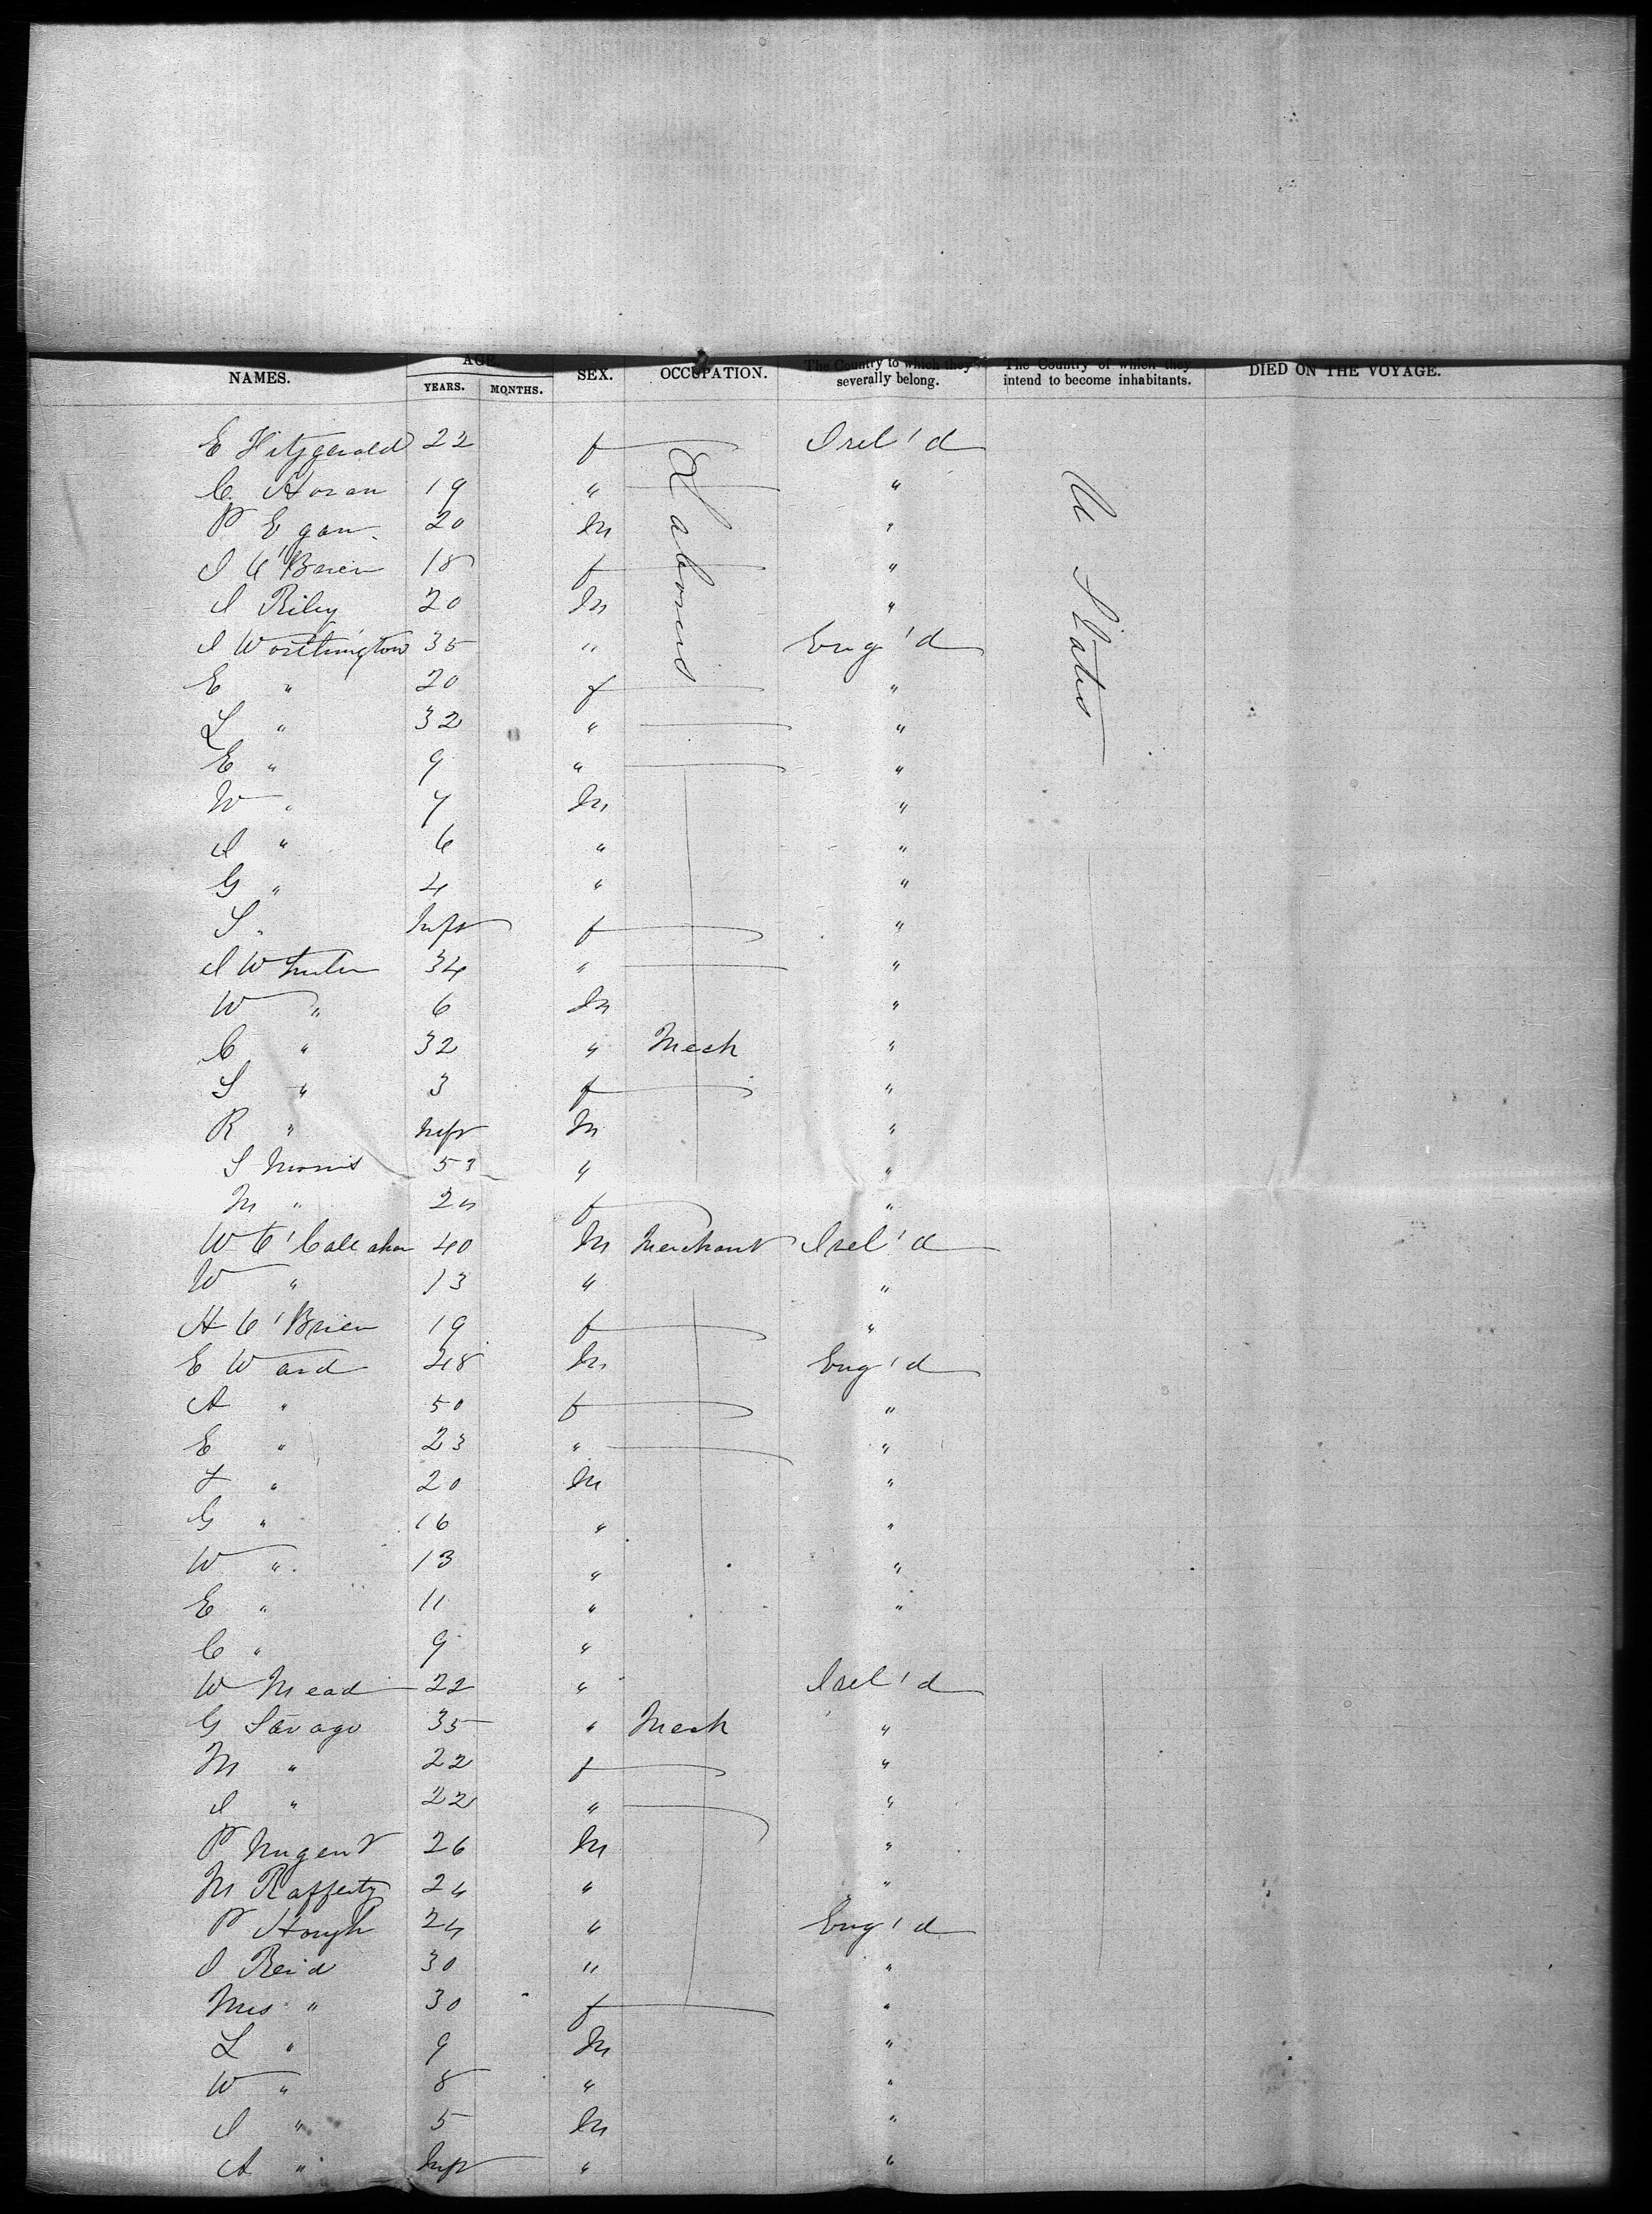 NAMES. AGE YEARS. MONTHS. SEX. OCCUPATION. The Country to which they severally belong. The Country of which they intend to become inhabitants. DIED ON THE VOYAGE.
E Fitzgerald 22 f Irel'd
C. Horan 19 "  "
P Egan 20 M "
J O'Brien 18 f "
J Riley 20 M "
Laborers
U States
J Worthington 35 " Eng'd
E " 20 f "
L " 32 " "
E " 9 " "
W " 7 M "
J " 6 " "
G " 4 " "
S " Inft f "
J W 34 " "
W " 6 M "
C " 32 " Mech "
S " 3 f "
R " Inft M "
S Morris 53 " "
M " f "
W O'Callahan 40 M Merchant Irel'd
W " 13 " "
H O'Brien 19 f "
E Ward 48 M Eng'd
A " 50 f "
E " 23 " "
F " 20 M "
G " 16 " "
W " 13 " "
E " 11 " "
C " 9 "
W Mead 22 " Irel'd
G Savage 35 " Mech "
M " 22 f "
J " 22 " "
P Nugent 26 M "
M Rafferty 24 " "
P Hough 24 " Eng'd
J Reid 30 " "
Mrs " 30 f "
L " 9 M "
W " 8 " "
J " 5 M "
A " Inft " "